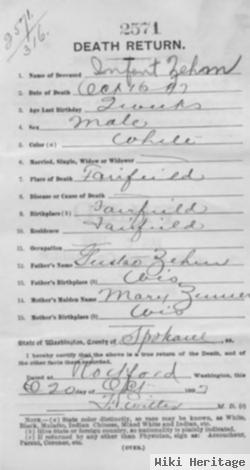 2571.
316.
2571
DEATH RETURN.
1. Name of Deceased Infant Zehm
2. Date of Death Oct 16 97
3. Age Last Birthday 2 weeks
4. Sex Male
5. Color (a) White
6. Married, Single, Widow or Widower
7. Place of Death Fairfield
8. Disease or Cause of Death
9. Birthplace (b) Fairfield
10. Residence Fairfield
11. Occupation
12. Father's Name Zehm
13. Father's Birthplace (b) Wis
14. Mother's Maiden Name Mary
15. Mother's Birthplace (b) Wis
State of Washington, County of Spokane ss.
I hereby certify that the above is a true return of the Death, and of
the other facts there recorded.
Dated at Rockford Washington, this
20 day of Oct
M. D.
NOTE—(a) State color distinctly, so race may be known, as White,
Black, Mulatto, Indian, Chinese, Mixed White and Indian, etc.
(b) Give state or foreign country, so nationality is plainly indicated
(c) If returned by any other than Physician, sign as: Accoutchant,
Parent, Coroner, etc.
(OVER.)
Wiki Heritage